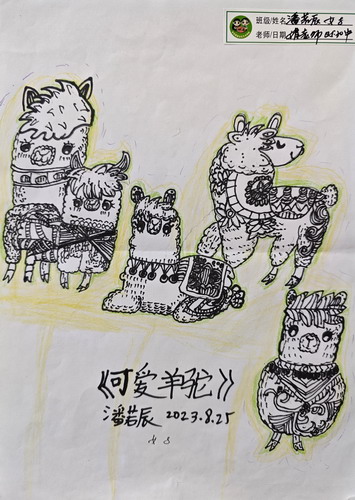 班级/姓名 潘若辰 女 8
老师/日期
《可爱羊驼》
潘若辰 2023.8.25
女 8